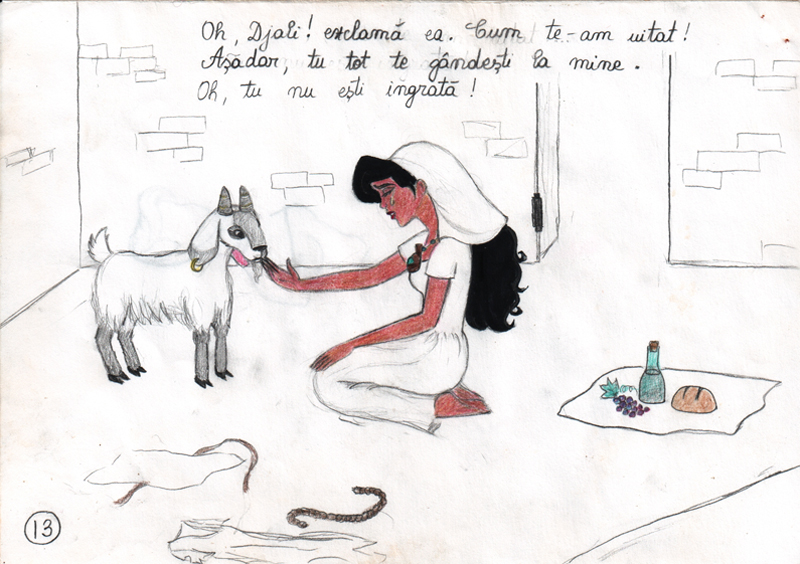 Oh, Djali! exclamă ea. Cum te-am uitat!
Așadar, tu tot te gândești la mine.
Oh, tu nu ești ingrată!
13